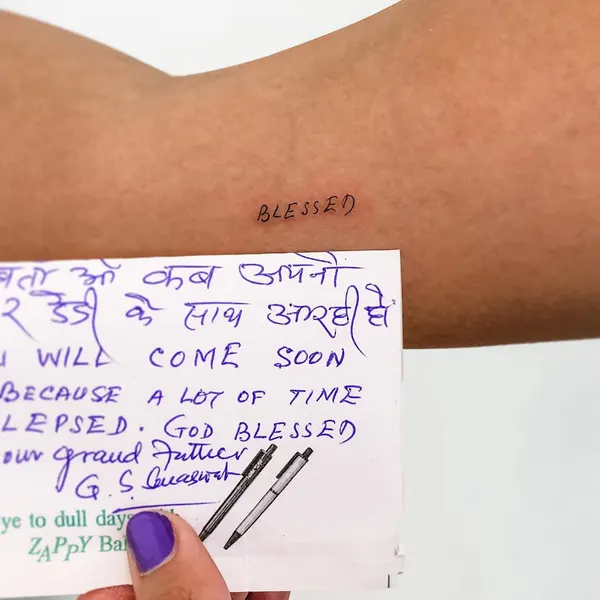 BLESSED
बताओ कब अपनी
डैडी के साथ आ रही हैं
WILL COME SOON
BECAUSE A LOT OF TIME
LEPSED. GOD BLESSED
our grand Father
G. S.
ye to dull days
ZAPPY Bal